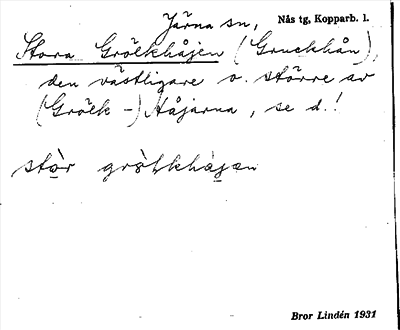 Järna sn, Nås tg, Kopparb. l.
Stora Grölkhåjen (Gruckhån),
den västligare o. större av
(Grölk-) Håjarna, se d.!
stòr grö̀lkhàjæn
Bror Lindén 1931